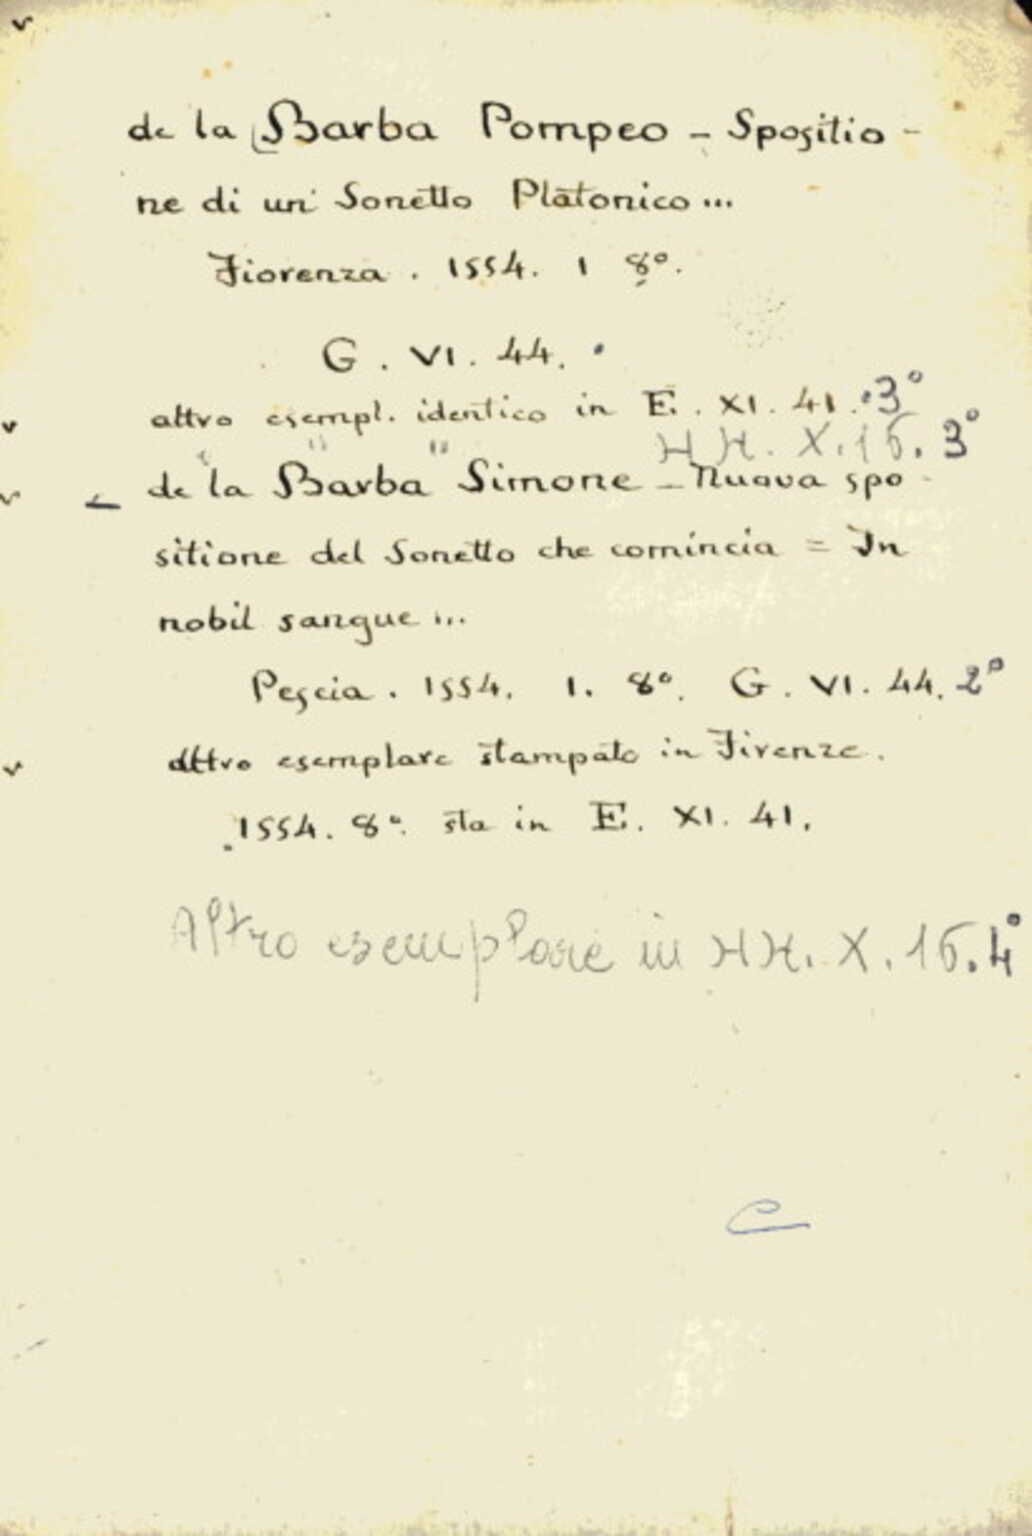 de la Barba Pompeo - Spositio-
ne di un Sonetto Platonico...
Fiorenza. 1554. 1 8º.
G. VI. 44.
altro esempl. identico in E. XI. 41. 3º
HH. X. 15. 3º
de la Barba Simone - Nuova spo-
sitione del Sonetto che comincia = In
nobil sangue...
Pescia. 1554. 1. 8º. G. VI. 44. 2º
altro esemplare stampato in Firenze.
1554. 8º. sta in E. XI. 41.
Altro esemplare in HH. X. 15. 4º
C